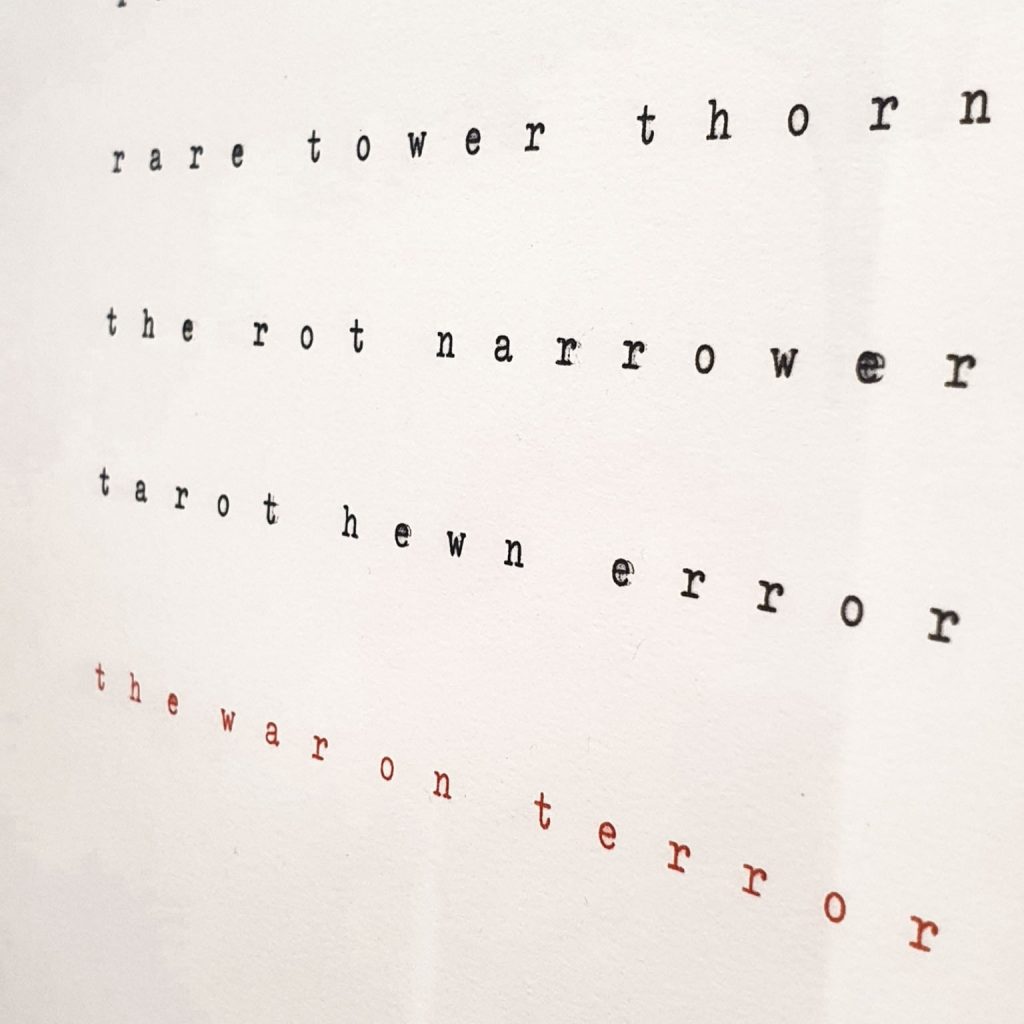 rare tower thorn
the rot narrower
tarot hewn error
the war on terror